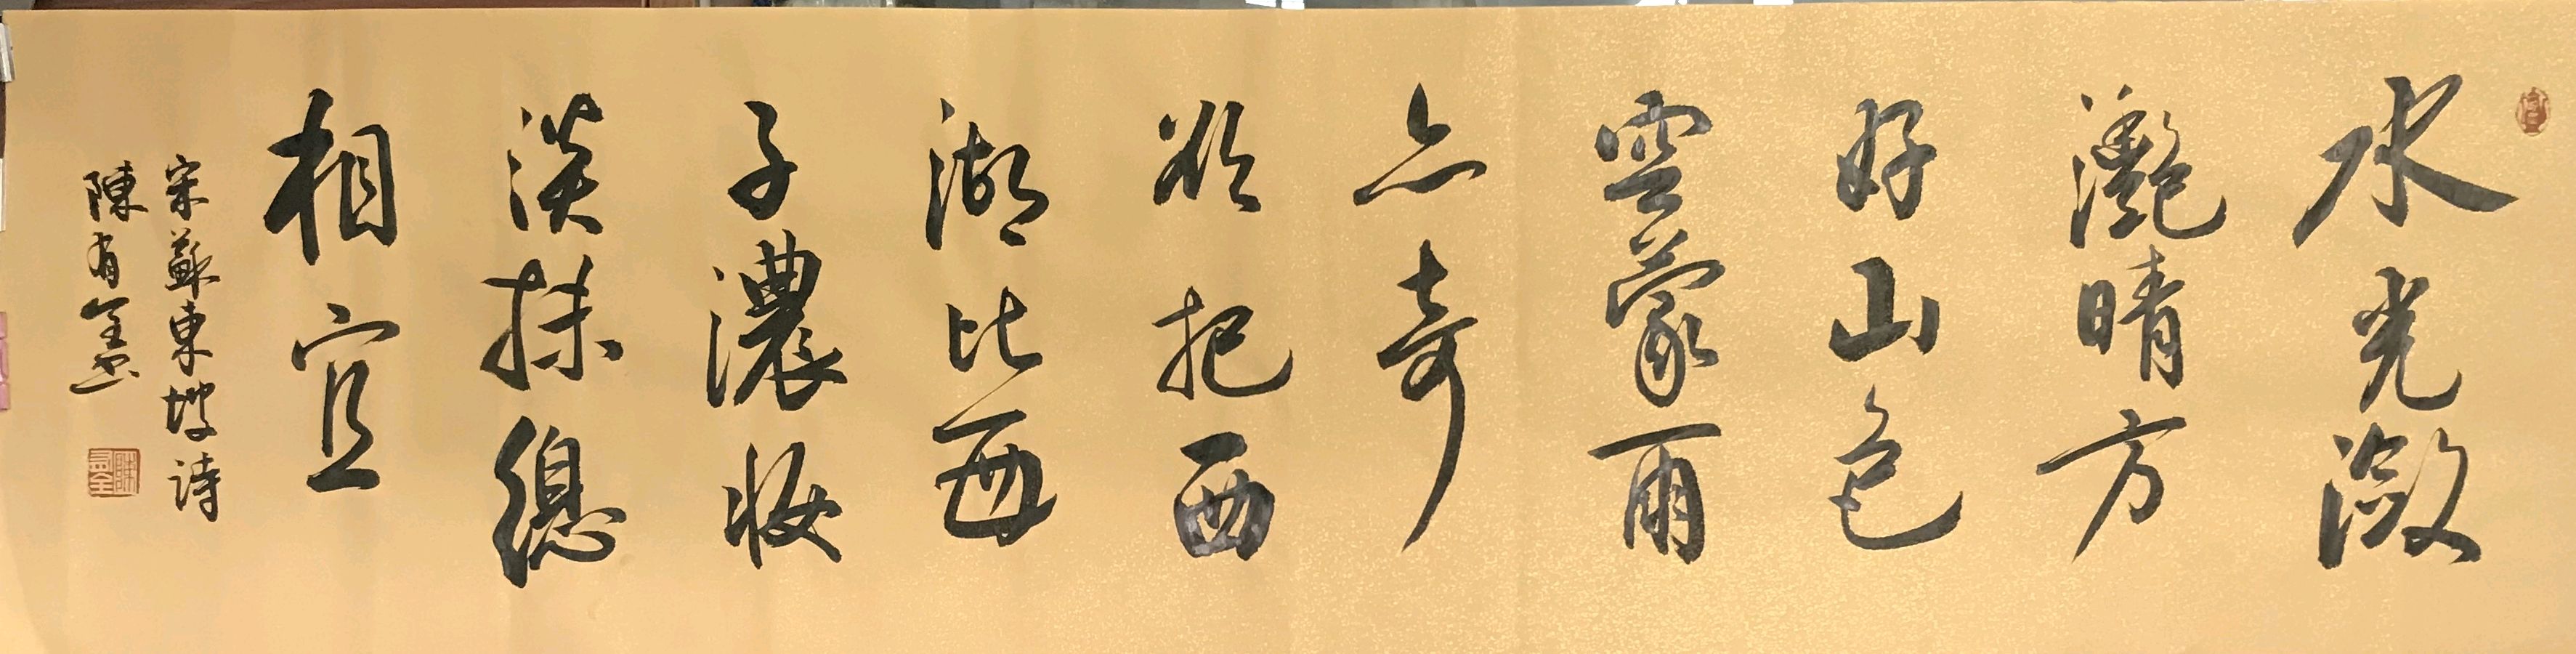 水光瀲
灧晴方
好山色
空蒙雨
亦奇
欲把西
湖比西
子濃妝
淡抹總
相宜
宋蘇東坡詩
陳有全書